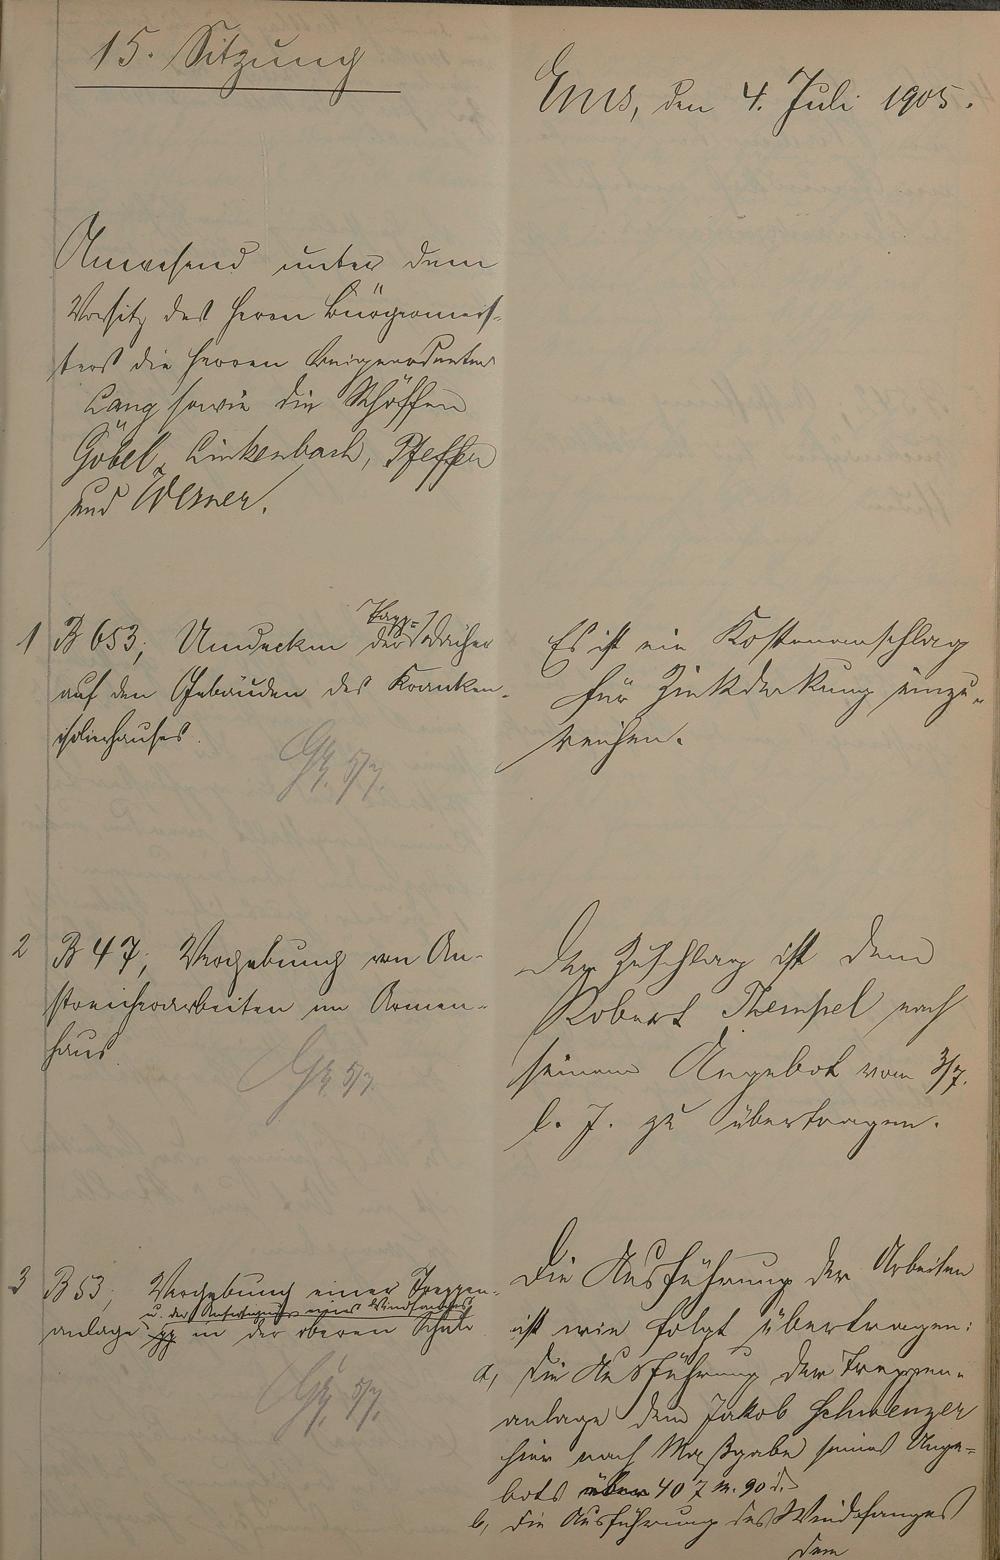 15. Sitzung
Ems, den 4. Juli 1905.
Anwesend unter dem
Vorsitz des Herrn Bürgermeis-
ters die Herren Beigeordneter
Lang sowie die Schöffen
Göbel, Linkenbach, Pfeffer
und Werner.
1 B 653, Umdecken der Papp-Dächer
auf den Gebäuden des Kranken-
isolierhauses.
5/7.
Es ist ein Kostenanschlag
für Zinkdeckung einzu-
reichen.
2 B 47, Vergebung von An-
streicherarbeiten im Armen-
haus
5/7.
Der Zuschlag ist dem
Robert Thempel nach
seinem Angebot vom 3/7.
l. J. zu übertragen.
3 B 53, Vergebung einer Treppen-
u. der Anfertigung eines Windfanges
anlage in der oberen Schule
5/7.
Die Ausführung der Arbeiten
ist wie folgt übertragen:
a, die Ausführung der Treppen-
anlage dem Jakob Schwenzer
hier nach Maßgabe seines Ange-
bots über 407 M. 90 d.
b, die Ausführung des Windfanges
dem